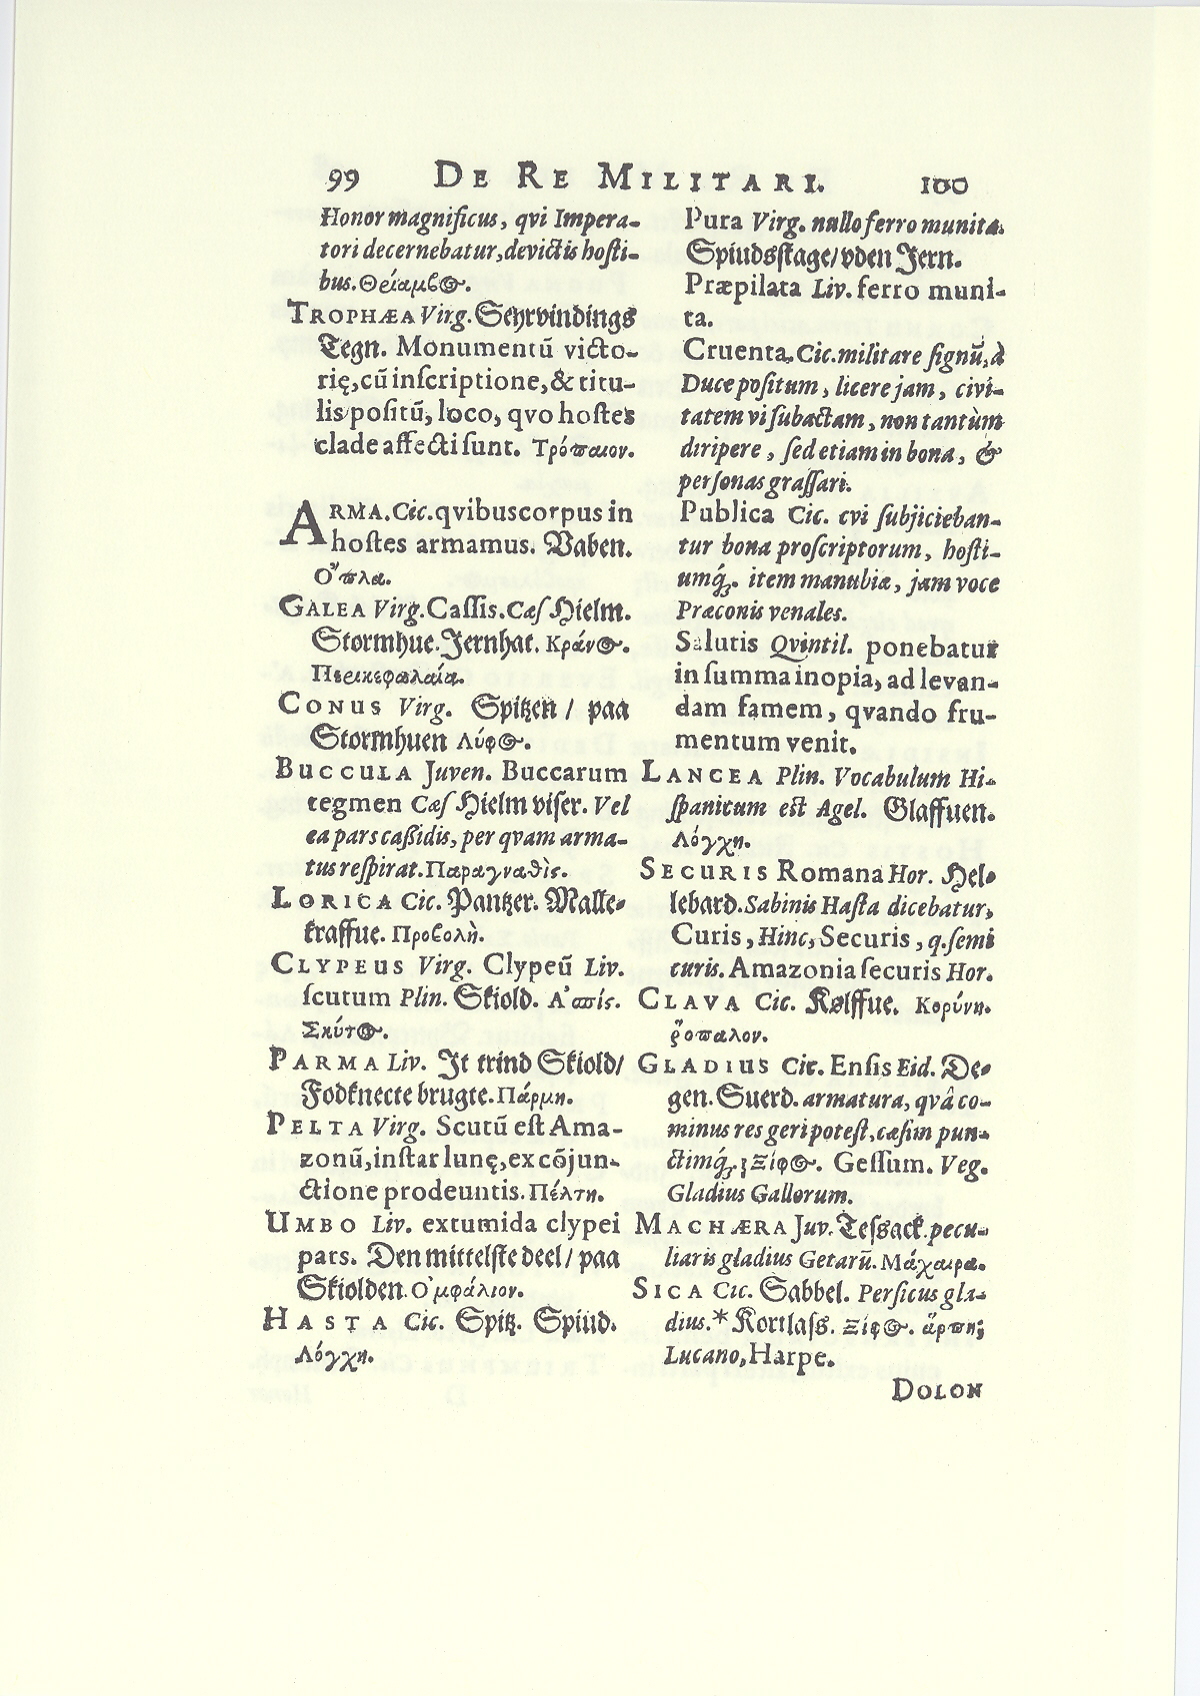 99 DE RE MILITARI. 100
Honor magnificus, qvi Impera-
tori decernebatur, devictis hosti-
bus. Θείαμβος.
TROPHÆA Virg. Seyrvindings
Tegn. Monumentū victo-
rię, cū inscriptione, & titu-
lis positū, loco, qvo hostes
clade affecti sunt. Τρόπαιον.
ARMA. Cic. qvibus corpus in
hostes armamus. Vaben.
Ὅπλα.
GALEA Virg. Cassis. Cæs Hielm.
Stormhue. Jernhat. Κράνος.
Περικεφαλαία.
CONUS Virg. Spitzen / paa
Stormhuen Λύφος.
BUCCULA Juven. Buccarum
tegmen Cæs Hielm viser. Vel
ea pars cassidis, per qvam arma-
tus respirat. Παραγναθὶς.
LORICA Cic. Pantzer. Malle-
kraffue. Προβολὴ.
CLYPEUS Virg. Clypeū Liv.
scutum Plin. Skiold. Ἀσπίς.
Σκύτος.
PARMA Liv. It trind Skiold/
Fodknecte brugte. Πάρμη.
PELTA Virg. Scutū est Ama-
zonū, instar lunę, ex cōjun-
ctione prodeuntis. Πέλτη.
UMBO Liv. extumida clypei
pars. Den mittelste deel / paa
Skiolden. Ὀμφάλιον.
HASTA Cic. Spitz. Spiud.
Λόγχη.
Pura Virg. nullo ferro munita.
Spiudsstage/ vden Jern.
Præpilata Liv. ferro muni-
ta.
Cruenta, Cic. militare signū, à
Duce positum, licere jam, civi-
tatem vi subactam, non tantùm
diripere, sed etiam in bona, &
personas grassari.
Publica Cic. cvi subjicieban-
tur bona proscriptorum, hosti-
umq́;. item manubiæ, jam voce
Præconis venales.
Salutis Qvintil. ponebatur
in summa inopia, ad levan-
dam famem, qvando fru-
mentum venit.
LANCEA Plin. Vocabulum Hi-
spanicum est Agel. Glaffuen.
Λόγχη.
SECURIS Romana Hor. Hel-
lebard. Sabinis Hasta dicebatur,
Curis, Hinc, Securis, q. semi
curis. Amazonia securis Hor.
CLAVA Cic. Kølffue. Κορύνη.
ῥόπαλον.
GLADIUS Cic. Ensis Eid. De-
gen. Suerd. armatura, qvâ co-
minus res geri potest, cæsim pun-
ctimq́;. Ξίφος. Gessum. Veg.
Gladius Gallorum.
MACHÆRA Juv. Tessack. pecu-
liaris gladius Getarū. Μάχαιρα.
SICA Cic. Sabbel. Persicus gla-
dius.* Kortlass. Ξίφος. ἅρπη;
Lucano, Harpe.
DOLON